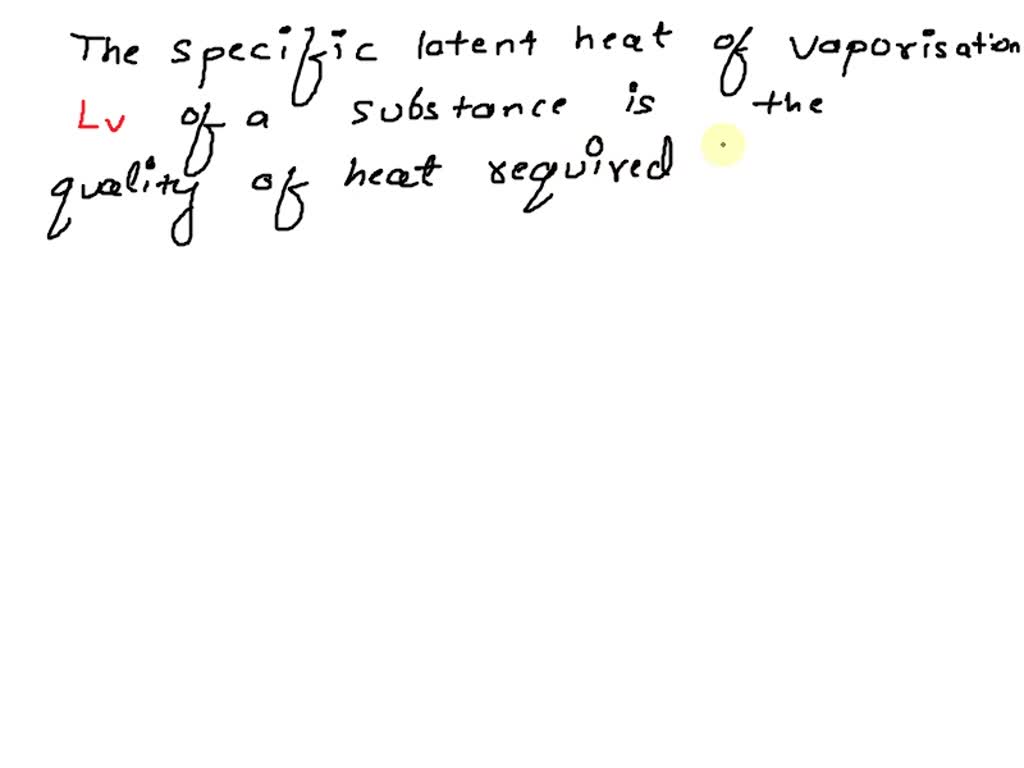 The specific latent heat of vaporisation
Lv of a substance is the
quality of heat required